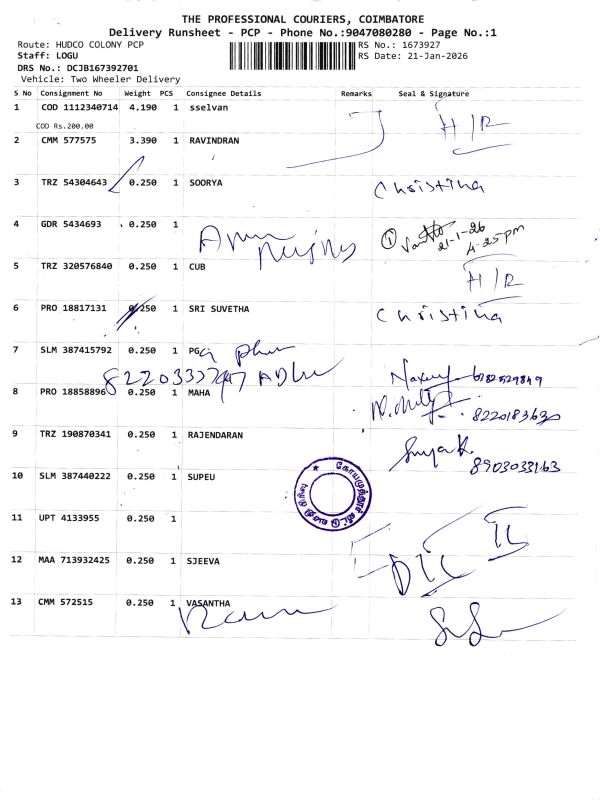 THE PROFESSIONAL COURIERS, COIMBATORE
Delivery Runsheet - PCP - Phone No.:9047080280 - Page No.:1
Route: HUDCO COLONY PCP
RS No.: 1673927
Staff: LOGU
RS Date: 21-Jan-2026
DRS No.: DCJB167392701
Vehicle: Two Wheeler Delivery
S No Consignment No Weight PCS Consignee Details Remarks Seal & Signature
1 COD 1112340714 4.190 1 sselvan
COD Rs.200.00
H/R
2 CMM 577575 3.390 1 RAVINDRAN
3 TRZ 54304643 0.250 1 SOORYA Christina
4 GDR 5434693 0.250 1
① 21-1-26
4-25pm
5 TRZ 320576840 0.250 1 CUB H/R
6 PRO 18817131 0.250 1 SRI SUVETHA Christina
7 SLM 387415792 0.250 1 PG
8 PRO 18858896 0.250 1 MAHA
8220183630
9 TRZ 190870341 0.250 1 RAJENDARAN
8903033163
10 SLM 387440222 0.250 1 SUPEU
11 UPT 4133955 0.250 1
12 MAA 713932425 0.250 1 SJEEVA
13 CMM 572515 0.250 1 VASANTHA